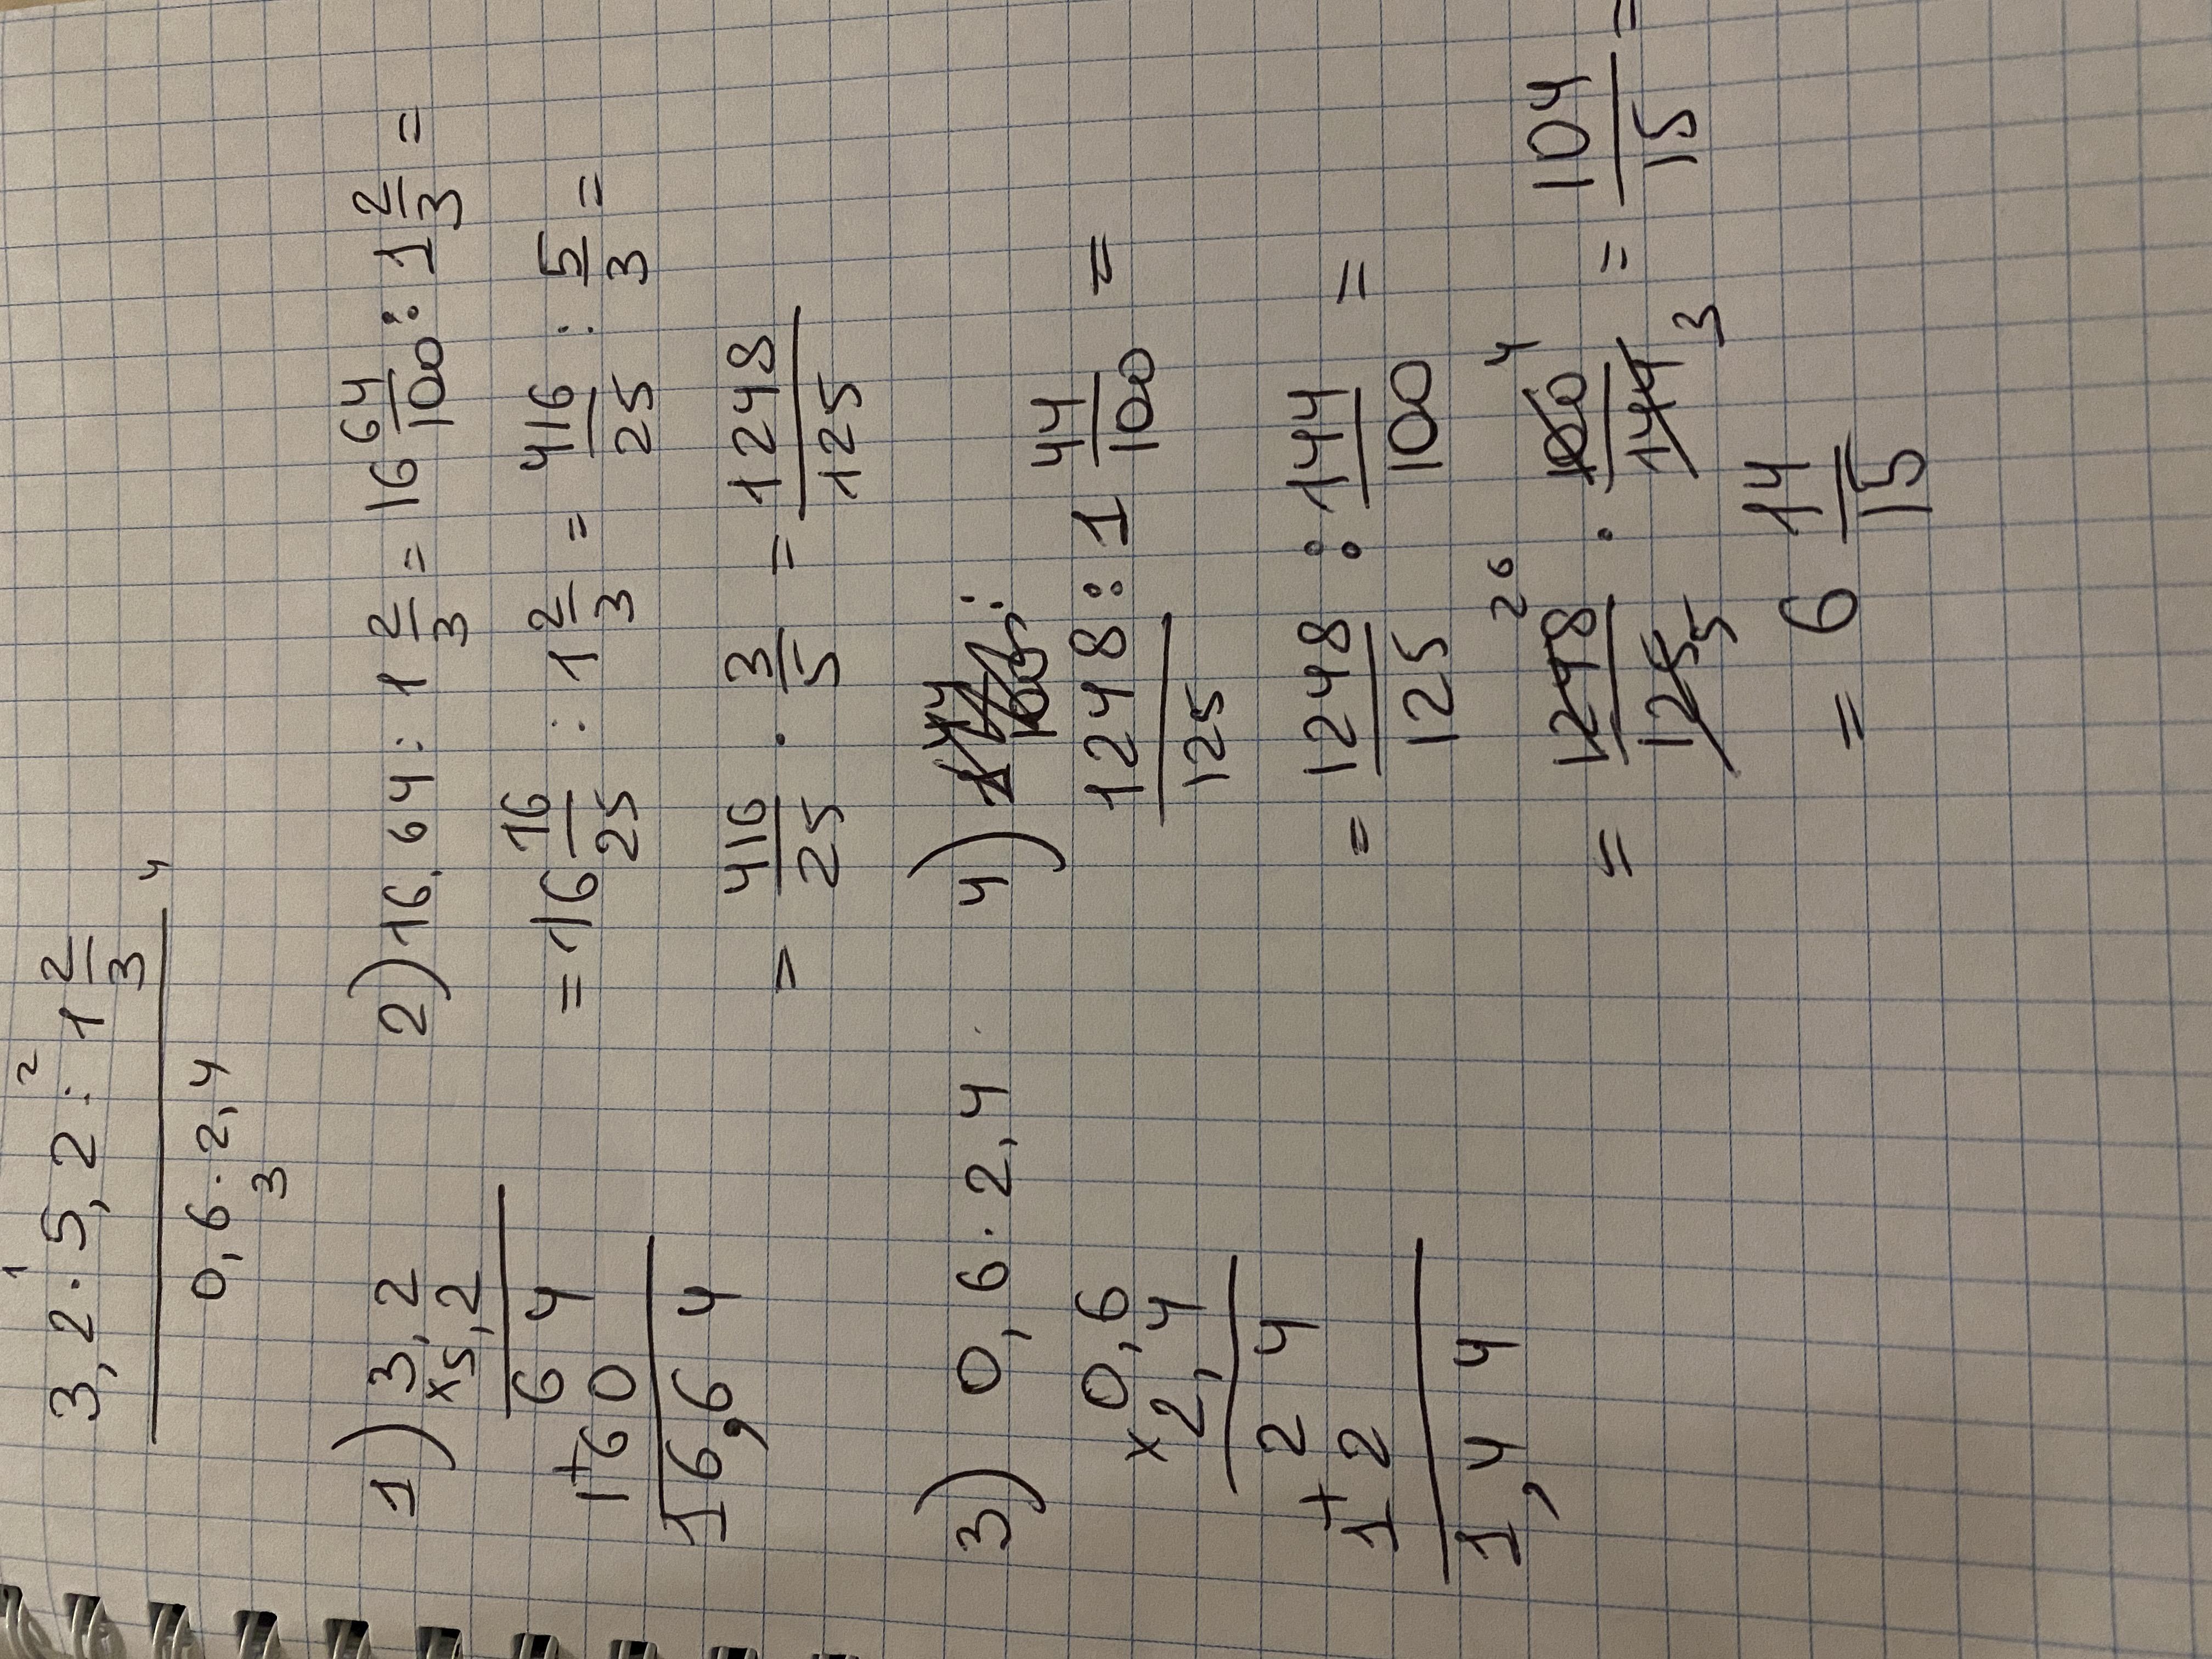 3,2 · 5,2 : 1 2/3
0,6 · 2,4
1 2 3 4
1) 3,2
×5,2
64
+
160
16,64
2) 16,64 : 1 2/3 = 16 64/100 : 1 2/3 =
= 16 16/25 : 1 2/3 = 416/25 : 5/3 =
= 416/25 · 3/5 = 1248/125
3) 0,6 · 2,4
0,6
×2,4
24
+
12
1,44
4)
1248/125 : 1 44/100 =
= 1248/125 : 144/100 =
26 4
= 1248/125 · 100/144 = 104/15 =
5 3
= 6 14/15